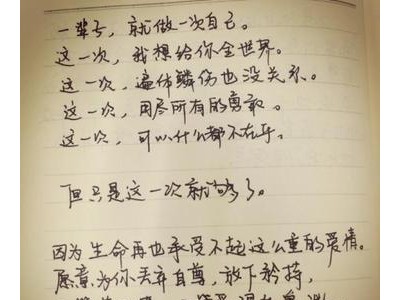 一辈子，就做一次自己。
这一次，我想给你全世界。
这一次，遍体鳞伤也没关系。
这一次，用尽所有的勇敢。
这一次，可以什么都不在乎。
但只是这一次就够了。
因为生命再也承受不起这么重的爱情。
愿意为你丢弃自尊，放下矜持，